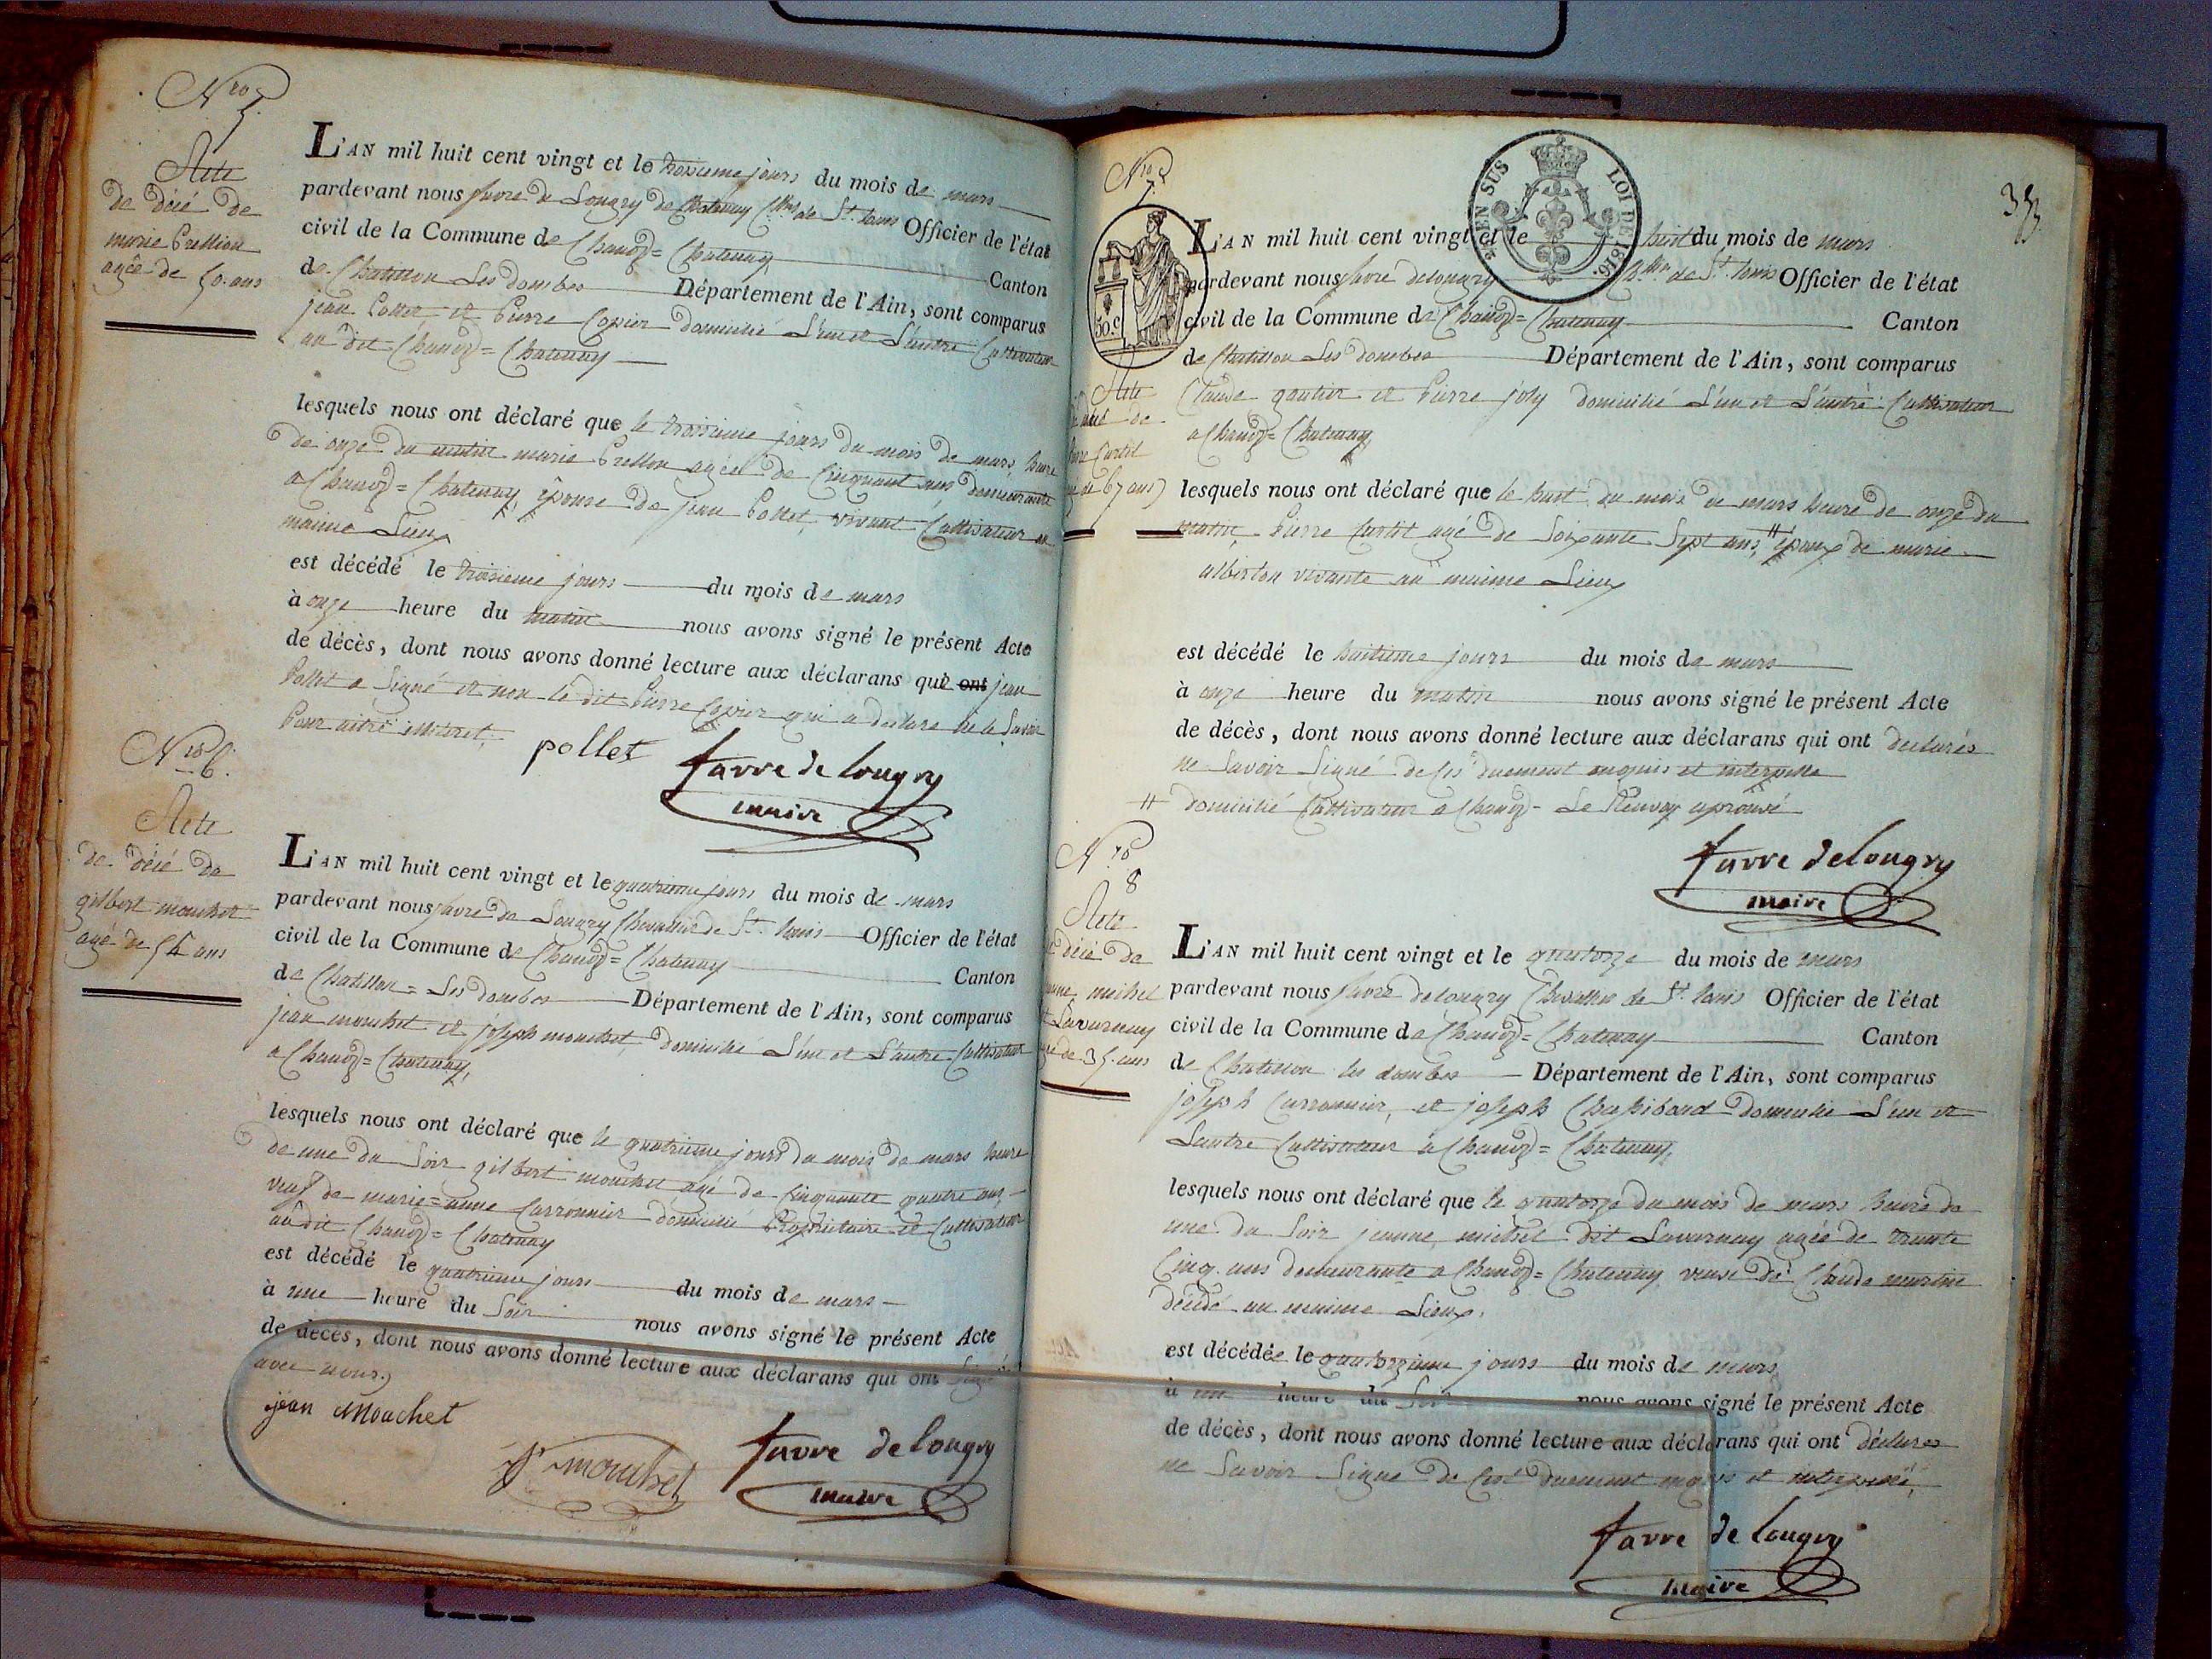 Nro 5.
Acte
de décé de
marie Prellion
agée de 50. ans
L'AN mil huit cent vingt et le troisieme jours du mois de mars
pardevant nous favre de Longry de Chatenay Cher de St. louis Officier de l'état
civil de la Commune de Chanoz=Chatenay Canton
de Chatillon Les dombes Département de l'Ain, sont comparus
jean Pollet et Pierre Copier domicilié L'un et L'autre Cultivateur
au dit Chanoz=Chatenay
lesquels nous ont déclaré que le troisieme jours du mois de mars heure
de onze du matin marie Prellon agée de Cinquant ans demeurante
a Chanoz=Chatenay, épouse de jean Pollet, vivant Cultivateur au
maime Lieux
est décédé le troisieme jours du mois de mars
à onze heure du matin nous avons signé le présent Acte
de décès, dont nous avons donné lecture aux déclarans qui ont jean
Pollet a Signé et non le dit Pierre Copier qui a declare ne le Savoir
Pour aitre illiteret,
pollet favre de longry
maire
Nro 6.
Acte
de décé de
gilbert mouchet
agé de 54 ans
L'AN mil huit cent vingt et le quatrieme jours du mois de mars
pardevant nous favre de Longry Chevallier de St. louis Officier de l'état
civil de la Commune de Chanoz=Chatenay Canton
de Chatillon=Les dombes Département de l'Ain, sont comparus
jean mouchet et joseph mouchet, domicilié L'un et L'autre Cultivateur
a Chanoz=Chatenay,
lesquels nous ont déclaré que le quatrieme jours du mois de mars heure
de une du Soir gilbert mouchet agé de Cinquante quatre ans
veuf de marie=anne Carronnier domicilié Propriétaire et Cultivateur
au dit Chanoz=Chatenay
est décédé le quatrieme jours du mois de mars
à une heure du Soir nous avons signé le présent Acte
de décès, dont nous avons donné lecture aux déclarans qui ont Signé
avec nous.
jean Mouchet
Jh mouchet favre de longry
maire
353
Nro 7.
2.E EN SUS LOI DE 1816.
50.c
Acte
de décé de
Pierre Curtil
agé de 67 ans
L'AN mil huit cent vingt et le huit du mois de mars
pardevant nous favre delongry Cher de St. louis Officier de l'état
civil de la Commune de Chanoz=Chatenay Canton
de Chatillon Les dombes Département de l'Ain, sont comparus
Claude gautier et Pierre joly domicilié L'un et L'autre Cultivateur
a Chanoz=Chatenay
lesquels nous ont déclaré que le huit du mois de mars heure de onze du
matin Pierre Curtil agé de Soixante Sept ans, # époux de marie
alberton vivante au maime Lieux
est décédé le huitieme jours du mois de mars
à onze heure du matin nous avons signé le présent Acte
de décès, dont nous avons donné lecture aux déclarans qui ont declarés
ne Savoir Signé de ces duement enquis et interpellé
# domicilié Cultivateur a Chanoz - Le Renvoy aprouvé
favre delongry
maire
Nro 8
Acte
de décé de
jeanne michel
dit Lavarnay
agée de 35. ans
L'AN mil huit cent vingt et le quatorze du mois de mars
pardevant nous favre delongry Chevallier de St. louis Officier de l'état
civil de la Commune de Chanoz=Chatenay Canton
de Chatillon les dombes Département de l'Ain, sont comparus
joseph Carronnier, et joseph domicilié L'un et
Lautre Cultivateur à Chanoz=Chatenay,
lesquels nous ont déclaré que le quatorze du mois de mars heure de
une du Soir jeanne michel dit Lavarnay agée de trante
Cinq ans demeurante a Chanoz=Chatenay, veuve de Claude
décédé au maime Lieux.
est décédée le quatorzieme jours du mois de mars
à une heure du Soir nous avons signé le présent Acte
de décès, dont nous avons donné lecture aux déclarans qui ont déclares
ne Savoir Signé de ces duement enquis et interpellé,
favre de longry
maire